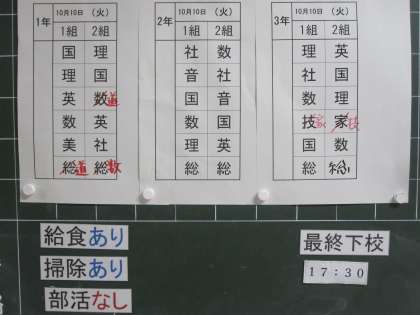 1年 10月10日 （火）
1組 2組
国 理
理 国
英 数道
数 英
美 社
総道 総数
2年 10月10日 （火）
1組 2組
社 数
音 社
国 音
数 国
理 英
総 総
3年 10月10日 （火）
1組 2組
理 英
社 国
数 理
技家 家技
国 数
総 総
給食あり
掃除あり
部活なし
最終下校
17:30